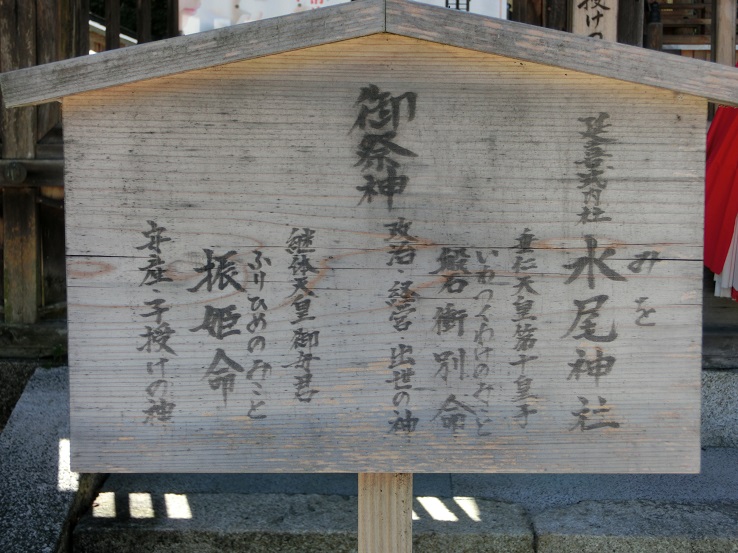 延喜式内社
水尾神社
みを
垂仁天皇第十皇子
いわつくわけのみこと
磐石衝別命
御祭神
政治・経営・出世の神
継体天皇御母君
ふりひめのみこと
振姫命
安産・子授けの神
授けの